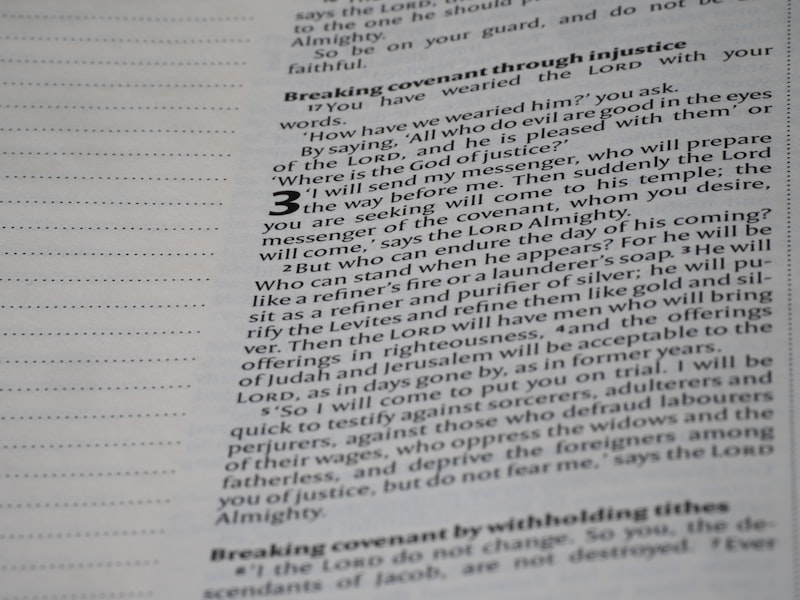 says the LORD,
to the one he should
Almighty.
So be on your guard, and do not be
faithful.
Breaking covenant through injustice
17 You have wearied the LORD with your
words.
‘How have we wearied him?’ you ask.
By saying, ‘All who do evil are good in the eyes
of the LORD, and he is pleased with them’ or
‘Where is the God of justice?’
3 ‘I will send my messenger, who will prepare
the way before me. Then suddenly the Lord
you are seeking will come to his temple; the
messenger of the covenant, whom you desire,
will come,’ says the LORD Almighty.
2 But who can endure the day of his coming?
Who can stand when he appears? For he will be
like a refiner’s fire or a launderer’s soap. 3 He will
sit as a refiner and purifier of silver; he will pu-
rify the Levites and refine them like gold and sil-
ver. Then the LORD will have men who will bring
offerings in righteousness, 4 and the offerings
of Judah and Jerusalem will be acceptable to the
LORD, as in days gone by, as in former years.
5 ‘So I will come to put you on trial. I will be
quick to testify against sorcerers, adulterers and
perjurers, against those who defraud labourers
of their wages, who oppress the widows and the
fatherless, and deprive the foreigners among
you of justice, but do not fear me,’ says the LORD
Almighty.
Breaking covenant by withholding tithes
6 ‘I the LORD do not change. So you, the de-
scendants of Jacob, are not destroyed. 7 Ever